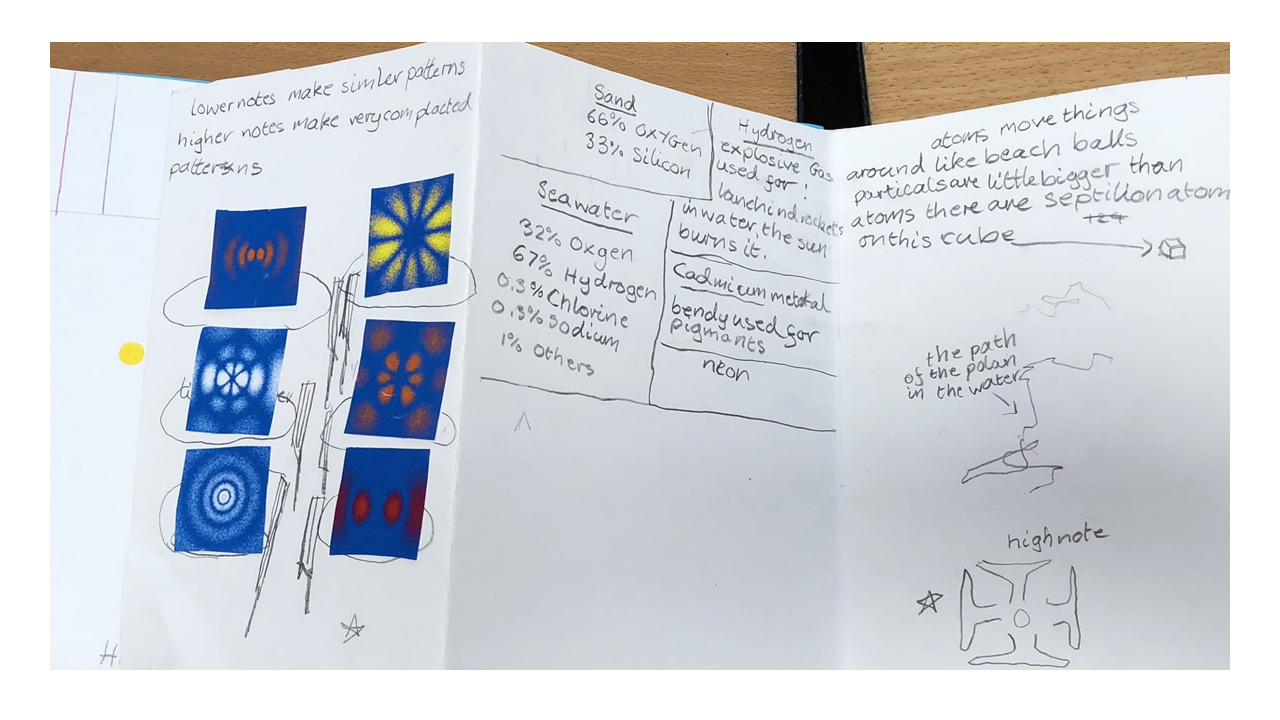 lower notes make simler patterns
higher notes make very complacted
patterns
H.
Sand
66% Oxygen
33% Silicon
Seawater
32% Oxgen
67% Hydrogen
0.3% Chlorine
0.3% Sodium
1% Others
Hydrogen
explosive Gas
used for!
launchind rockets
in water, the sun
burns it.
Cadmium metal
bendy used for
pigmants
neon
atoms move things
around like beach balls
particals are little bigger than
atoms there are septillon atom
on this cube
the path
of the polan
in the water
high note